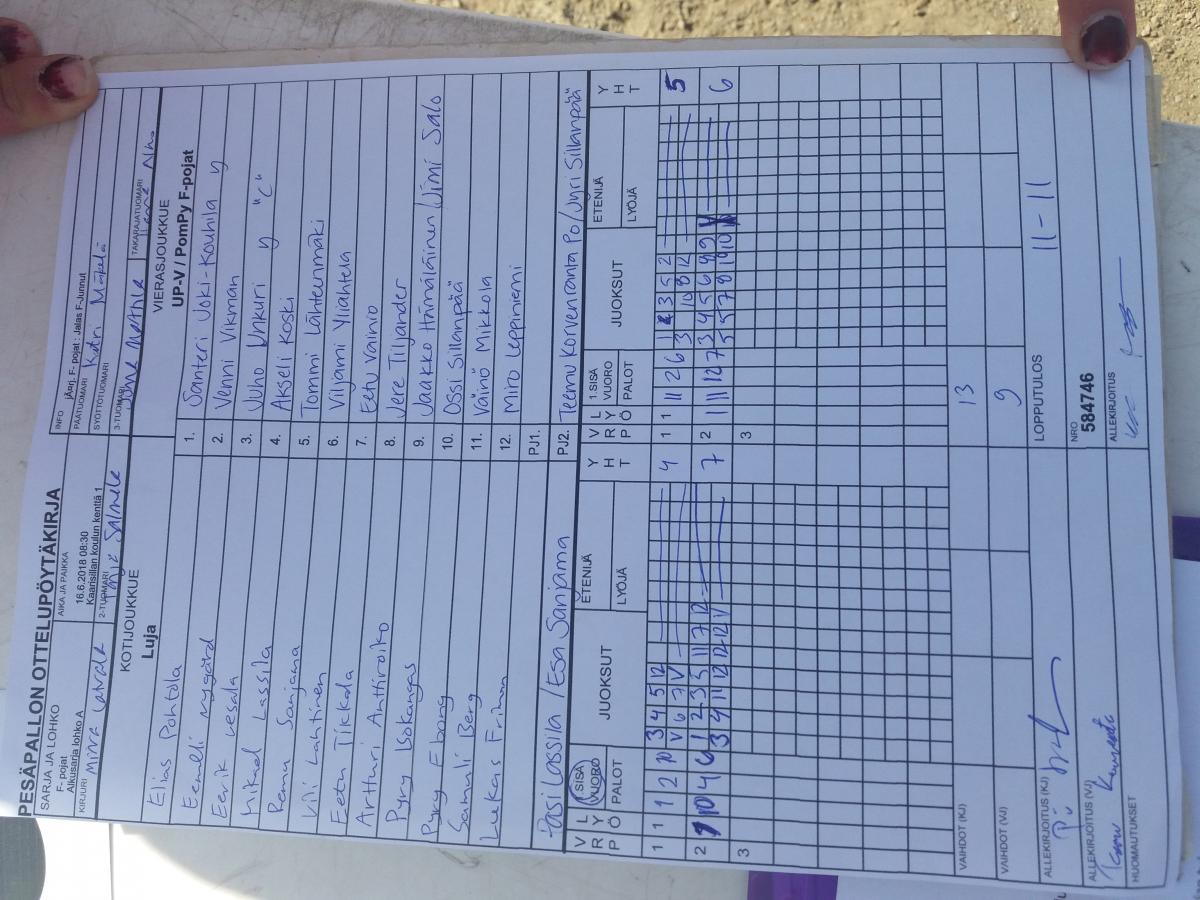 PESÄPALLON OTTELUPÖYTÄKIRJA
SARJA JA LOHKO
F- pojat
Alkusarja lohko A
AIKA JA PAIKKA
16.6.2018 08:30
Kaarisillan koulun kenttä 1
INFO jÄrj. F- pojat : Jalas F-Junnut
PÄÄTUOMARI Katri Mäkelä
SYÖTTÖTUOMARI
KIRJURI Minna
2-TUOMARI
3-TUOMARI
TAKARAJATUOMARI
KOTIJOUKKUE
Luja
VIERASJOUKKUE
UP-V / PomPy F-pojat
Elias Pohtola 1. Santeri Joki-Kouhila y
Eemeli Nygård 2. Venni Vikman
Eerik Vesala 3. Juho Unkuri y "C"
Mikael Lassila 4. Akseli Koski
Remu Sanjama 5. Tommi Lähteenmäki
Vili Lahtinen 6. Viljami Yliahtela
Eetu Tikkala 7. Eetu Vainio
Artturi Anttiroiko 8. Jere Tiljander
Pyry Isokangas 9. Jaakko Hämäläinen / Jimi Salo
Pyry Ebong 10. Ossi Sillanpää
Samuli Berg 11. Väinö Mikkola
Lukas Friman 12. Miro Leppiniemi
PJ1.
Pasi Lassila / Esa Sanjama PJ2. Teemu Korvenranta Po / Jyri Sillanpää
V R P L Y Ö 1.SISÄ VUORO PALOT JUOKSUT ETENIJÄ LYÖJÄ Y H T V R P L Y Ö 1.SISÄ VUORO PALOT JUOKSUT ETENIJÄ LYÖJÄ Y H T
1 1 1 2 10 3 4 5 12 4 1 1 11 2 6 1 2 3 5 2 5
V 6 7 V 3 10 8 12
2 1 10 4 6 1 2 3 5 11 7 12 7 2 1 11 12 7 3 4 5 6 8 9 V 6
3 4 11 12 12 12 V 5 7 8 10
3 3
VAIHDOT (KJ) 13
VAIHDOT (VJ) 9
ALLEKIRJOITUS (KJ)
LOPPUTULOS 11 - 11
ALLEKIRJOITUS (VJ)
NRO
584746
HUOMAUTUKSET
ALLEKIRJOITUS